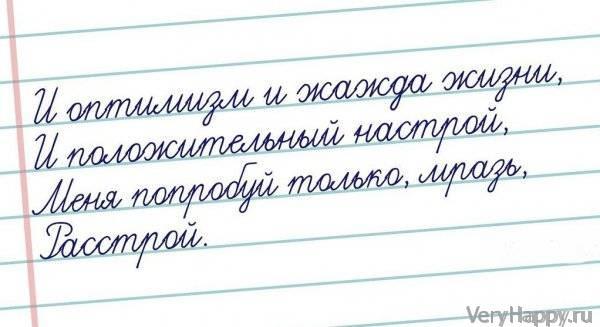 И оптимизм и жажда жизни,
И положительный настрой,
Меня попробуй только, мразь,
Расстрой.
VeryHappy.ru